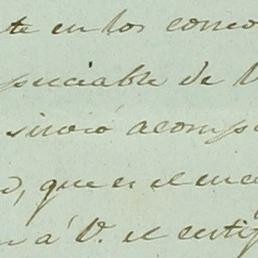 te en los conco
preciable de V
sirvió acompa
o, que es el enca
n á V. el certif